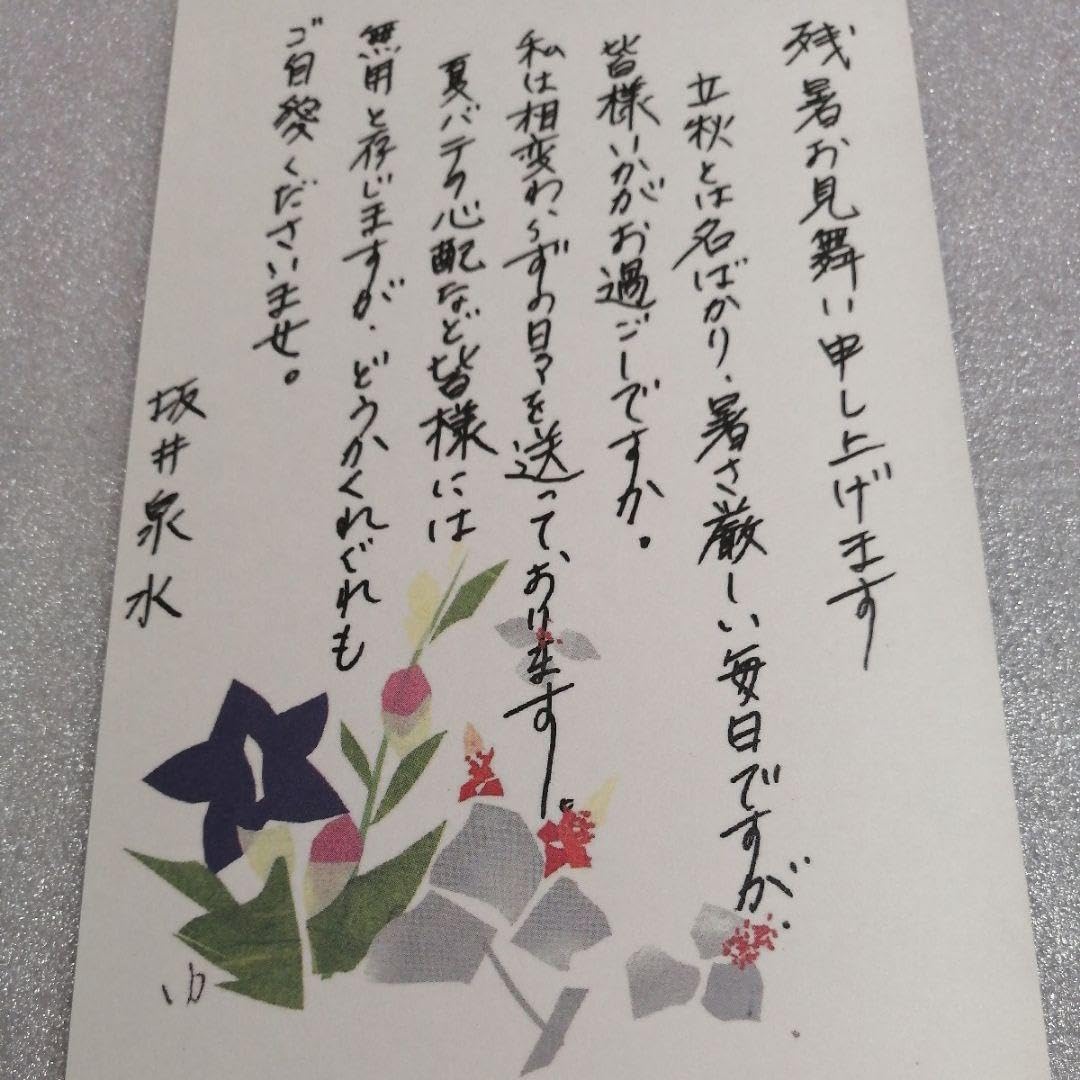 残暑お見舞い申し上げます
立秋とは名ばかり、暑さ厳しい毎日ですが、
皆様いかがお過ごしですか。
私は相変わらずの日々を送っております。
夏バテク心配など皆様には
無用と存じますが、どうかくれぐれも
ご自愛くださいませ。
坂井泉水